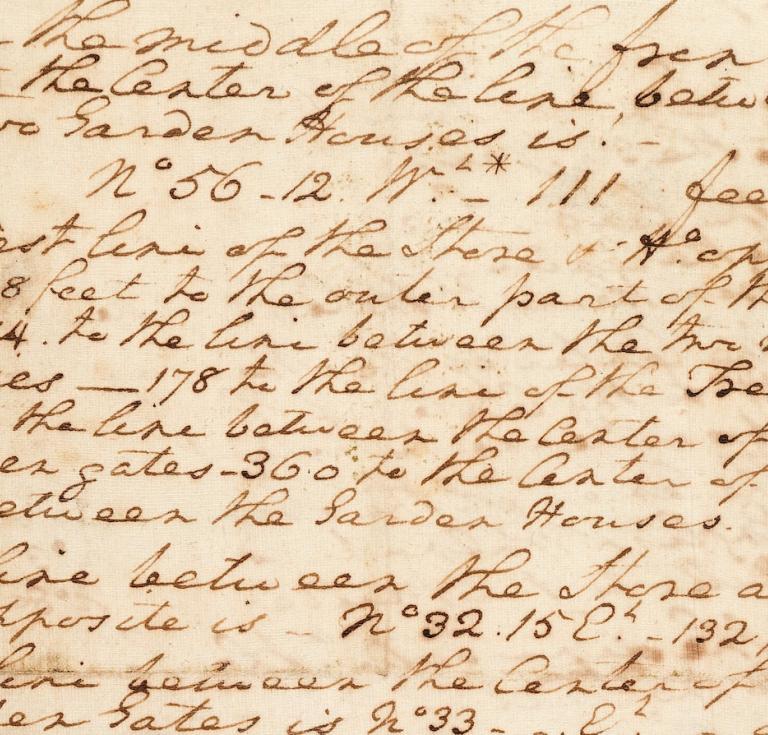 the middle of the
the Center of the line, betw
Garden Houses is. -
No 56 - 12. Wt* - 111 fee
est line of the Store & He op
8 feet to the outer part of th
4. to the line between the two
es — 178 to the line of the Tre
the line between the Center of
en gates - 360 to the Center of
etween the Garden Houses.
line between the Store a
pposite is - No 32. 15 Et. - 132,
line between the Center of
den Gates is No 33 - Et